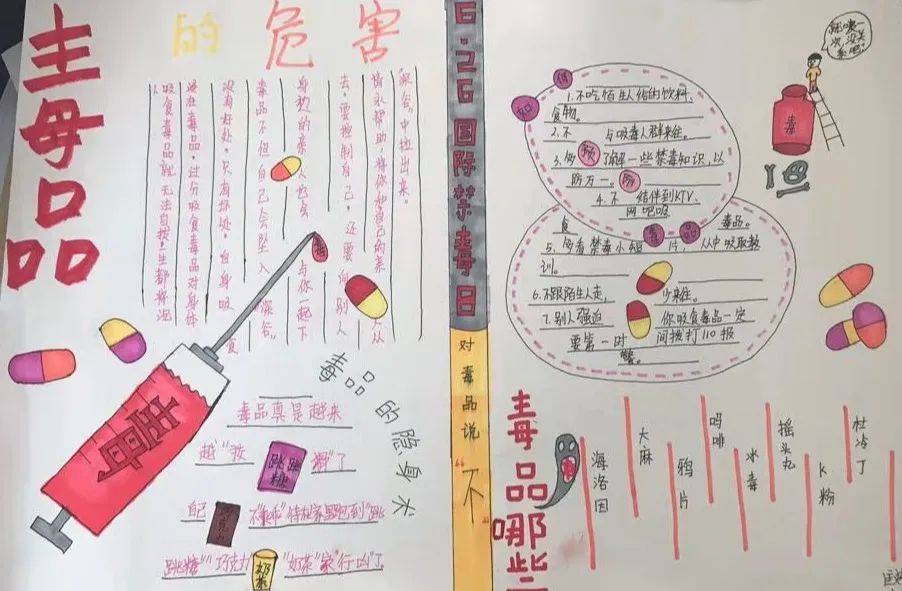 毒品
的危害
吸食毒品就无法自拔,生都葬
在毒品。过分吸食毒品对身体
没有好处,只有坏处。自身吸食
毒品不但自己会坠入“深谷。”
身边的亲人也会与你一起下
去,要控制自己,还要向别人
请求帮助,将你和自己的亲人从
“深谷。中拉出来。
毒
毒
毒品的隐身术
毒品真是越来
越“狡
跳跳糖
猾”了
自己
不“乖乖”待在家里跑到“跳
跳糖”“巧克力
奶茶
“奶茶”家“行凶”了
6·26国际禁毒日
对毒品说“不”
如何
1.不吃陌生人给的饮料、
食物。
2.不与吸毒人群来往。
3.多了解一些禁毒知识,以
预
防万一。
防
4.不结伴到KTV、
网吧吸
食毒品。
毒品
5.多看禁毒小短片,从中吸取教
训。
6.不跟陌生人走,少来往。
7.别人强迫你吸食毒品一定
要第一时间拨打110报
警。
就喫一次,没关系吧。
毒
毒品哪些
毒
海洛因
大麻
鸦片
吗啡
冰毒
摇头丸
K粉
杜冷丁